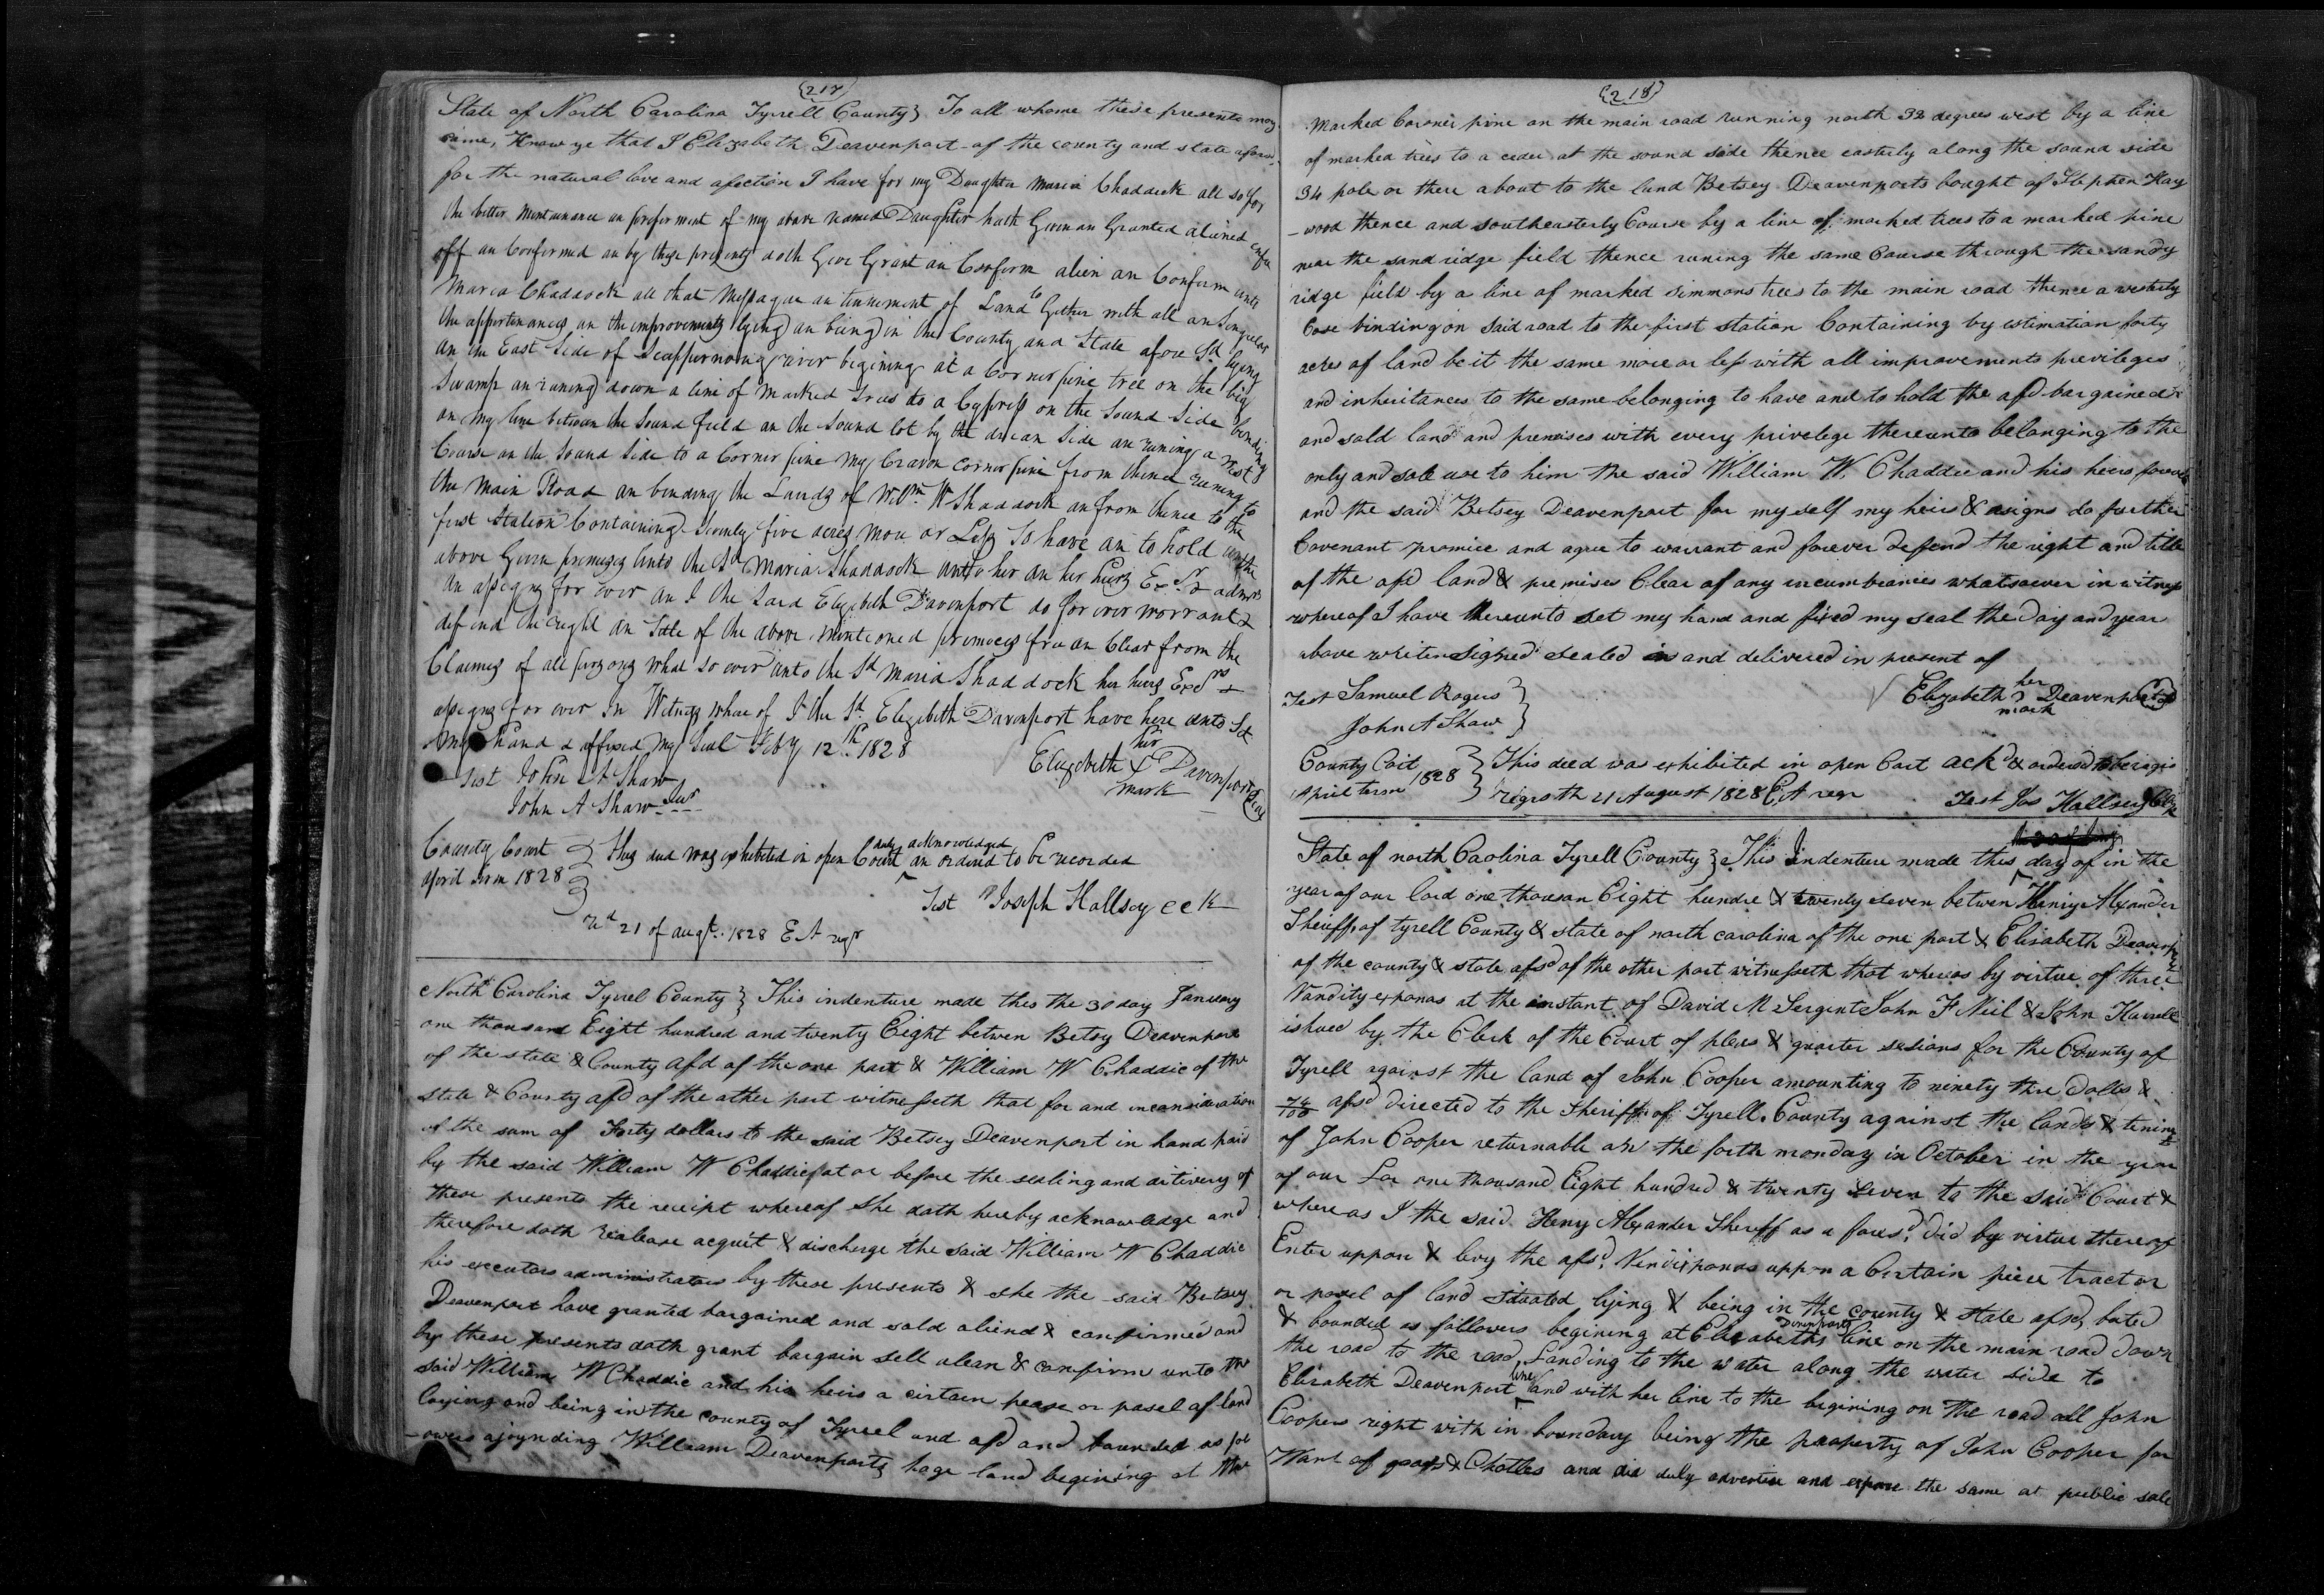 217
State of North Carolina Tyrrell County} To all whome these presents may
came, Know ye that I Elizabeth Deavenport of the county and state afores
for the natural love and afection I have for my Daughter Maria Chaddick all so for
the better mentainance an preferment of my above named Daughter hath Given an Granted aliened enfe
off an Confermed an by these presents doth Give Grant an Conform alien an Conferm unto
Maria Chaddock all that Messague an tennement of Land to Gether with all an Singular
the appertenances an the improvements lying an being in the County and State afore Sd lying
an the East Side of Scuppernong river begining at a Corner pine tree on the big
Swamp an runing down a line of Marked Trees to a Cypress on the Sound Side binding
on My line between the Sound field an the Sound lot by the ducan Side an runing a West
Course on the Sound Side to a Corner pine My Cravon corner pine from thence runing to
the Main Road an bending the Lands of Willm W Shaddock an from thence to the
first Station Containing Seventy five acres More or Less To have an to hold the
above Given premeses unto the Sd Maria Shaddock unto her an her heirs Exrs & admrs
an assigns for ever an I the Said Elizebeth Davenport do for ever worrant &
defend the right an Title of the above mentioned premeces free an Clear from the
Claimes of all persons what so ever unto the Sd Maria Shaddock her heirs Exdrs &
assigns for ever In Witness whare of I the Sd Elizebeth Davenport have here unto Set
My hand & affixed My Seal Feby 12th 1828
her
Test John A Shaw Elizebeth X Davenport Seal
John A Shaw Junr mark
County Court } This deed was exhibited in open Court duly acknowledged an ordered to be recorded
april term 1828
Test Joseph Hallsey cck
Rd 21 of augt. 1828 E A regr
North Carolina Tyrrel County} This indenture made this the 30 day January
one thousand Eight hundred and twenty Eight betwen Betsy Deavenport
of the state & County afd of the one part & William W Chaddic of the
state & County afd of the other part witnesseth that for and inconsideration
of the sum of Forty dollars to the said Betsey Deavenport in hand paid
by the said William W Chaddic at or before the sealing and delivery of
these presents the receipt whereof she doth hereby acknowledge and
therefore doth realease acquit & discharge the said William W Chaddic
his executors administrators by these presents & she the said Betsey
Deavenport have granted bargained and sold aliend & confirmed and
by these presents doth grant bargain sell alean & confirm unto the
said William W Chaddic and his heirs a certain pease or pasel of land
laying and being in the county of Tyrrel and afd and bounded as fol
-owes ajoynding William Deavenports hage land begining at the
218
Marked Cornner pine on the main road running north 32 degrees west by a line
of marked trees to a ceder at the sound side thence easterly along the sound side
34 pole or there about to the land Betsey Deavenports bought of Stephen Hay
-wood thence and southeasterly Course by a line of marked trees to a marked pine
near the sand ridge field thence runing the same Course through the sandy
ridge field by a line of marked simmons trees to the main road thence a westerly
Cose binding on said road to the first station Containing by estimation forty
acres of land be it the same more or less with all improvements previleges
and inheritances to the same belonging to have and to hold the afd bargained
and sold land and premises with every privelege thereunto belonging to the
only and sole use to him the said William W. Chaddic and his heirs forever
and the said Betsey Deavenport for myself my heirs & asigns do further
Covenant promice and agree to warrant and forever defend the right and title
of the afd land & premises Clear of any incumbrances whatsoever in witness
whereof I have thereunto set my hand and fixed my seal the day and year
above writen signed sealed and delivered in present of
her
Test Samuel Rogers } Elizabeth ? Deavenport
John A Shaw mark
County Cort } This deed was exhibited in open Cort ackd & ordered to be regis
April term 1828 Regesth 21 August 1828 E A regr Test Jos Hallsey Clk
State of north Caolina Tyrell County} This Indenture made this day of in the
year of our lord one thousan Eight hundre & twenty seven betwen Henry Alexander
Sheriff of tyrell County & state of north carolina of the one part & Elisabeth Deavenport
of the county & state afsd of the other part witnesseth that whereas by virtue of three
Vandity exponas at the instant of David M Sergent John F Neil & John Harrell
ishued by the Clerk of the Court of pleas & quarter sesions for the County of
Tyrell against the land of John Cooper amounting to ninety thre dolls &
74/100 afsd directed to the Sheriff of Tyrell County against the lands & tenints
of John Cooper returnable an the forth monday in October in the year
of our Lor one thousand Eight hundred & twenty seven to the said Court &
where as I the said Henry Alexander Sheriff as a foresd, did by virtue thereof
Enter uppon & levy the afsd. Vendixponas uppon a Certain piece tract or
or pasel of land situated lying & being in the county & state afsd, buted
& bounded as followers begining at Elizabeths Davenports line on the main road down
the road to the road, Landing to the water along the water side to
Elisabeth Deavenport line and with her line to the begining on the road all John
Coopers right with in boundary being the property of John Cooper for
Want of goods & Chatles and did duly advertise and expose the same at public sale